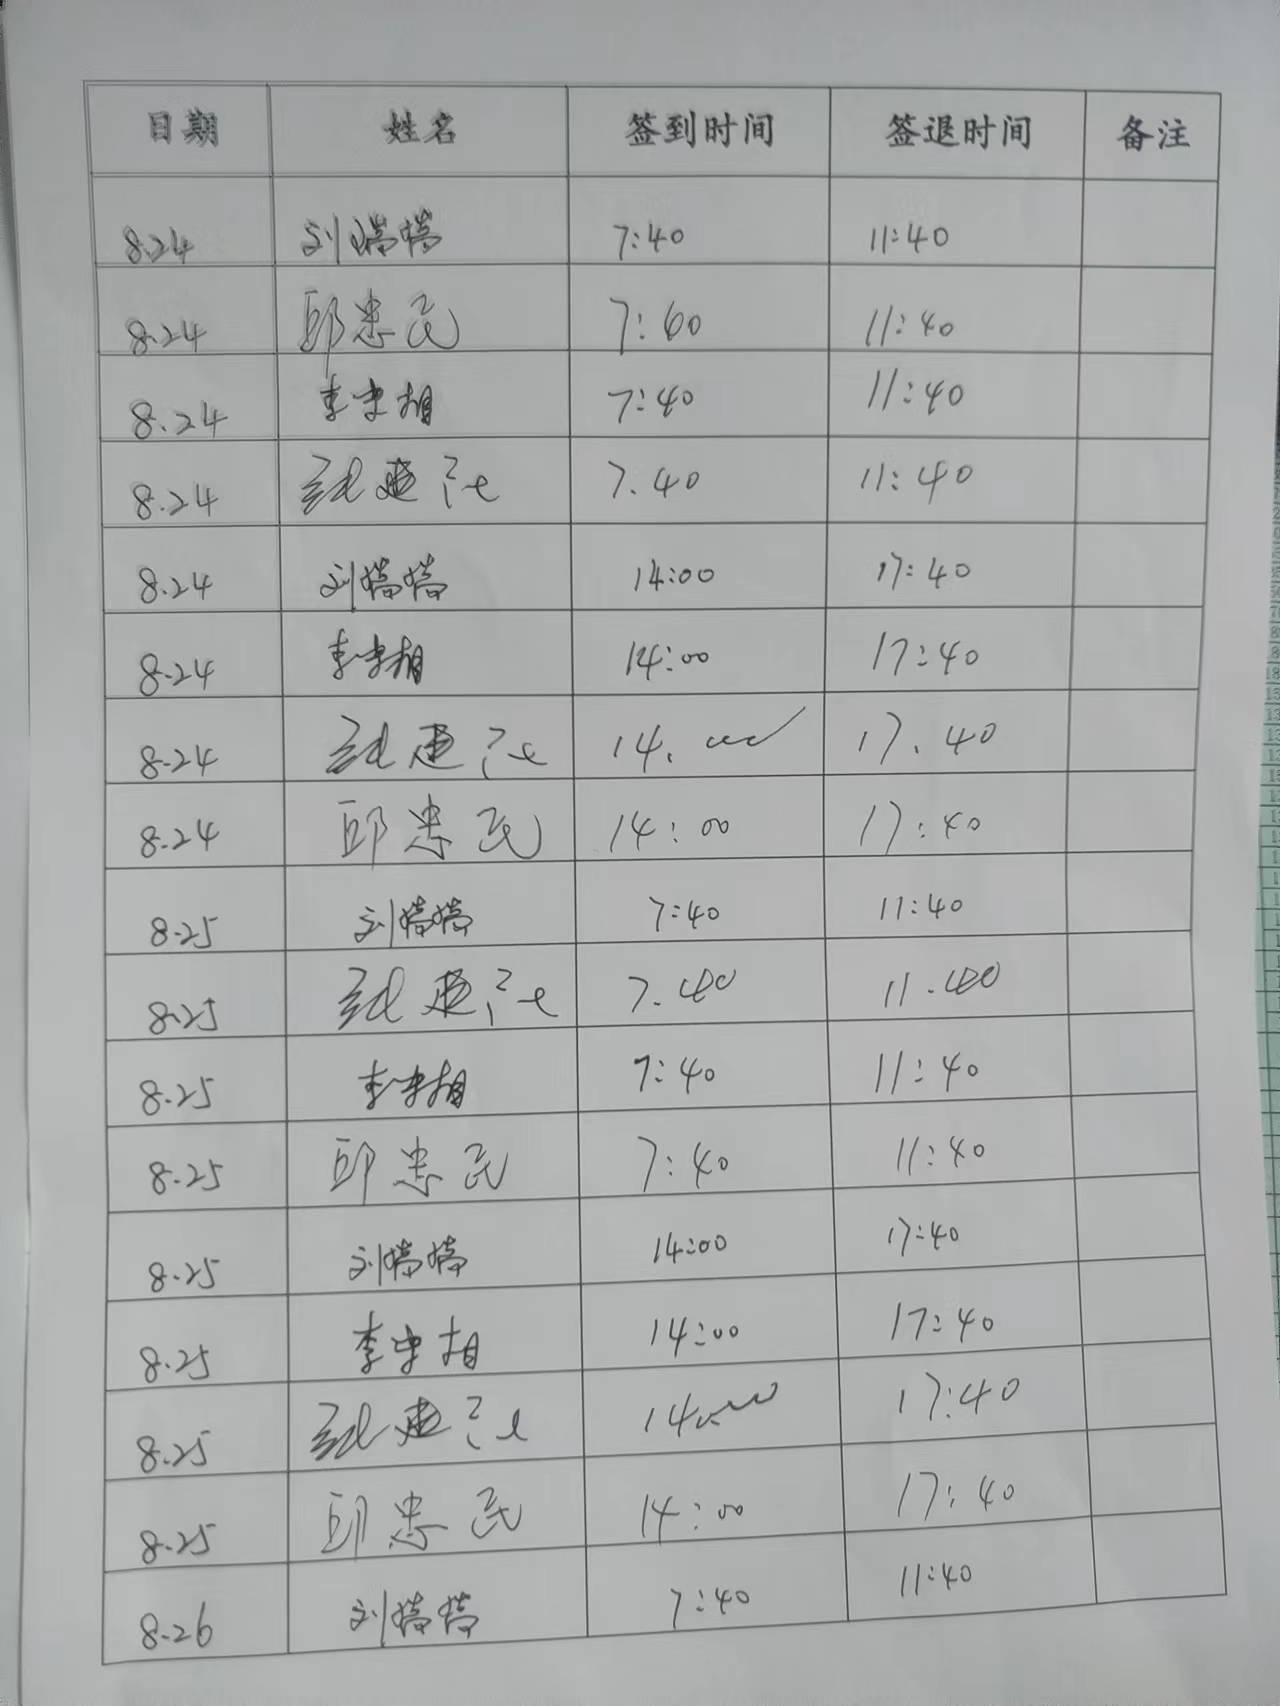 日期 姓名 签到时间 签退时间 备注
8.24 刘婷婷 7:40 11:40
8.24 邱忠民 7:60 11:40
8.24 李忠相 7:40 11:40
8.24 张建 7.40 11:40
8.24 刘婷婷 14:00 17:40
8.24 李忠相 14:00 17:40
8.24 张建 14.00 17.40
8.24 邱忠民 14:00 17:40
8.25 刘婷婷 7:40 11:40
8.25 张建 7.40 11.40
8.25 李忠相 7:40 11:40
8.25 邱忠民 7:40 11:40
8.25 刘婷婷 14:00 17:40
8.25 李忠相 14:00 17:40
8.25 张建 14.00 17:40
8.25 邱忠民 14:00 17:40
8.26 刘婷婷 7:40 11:40